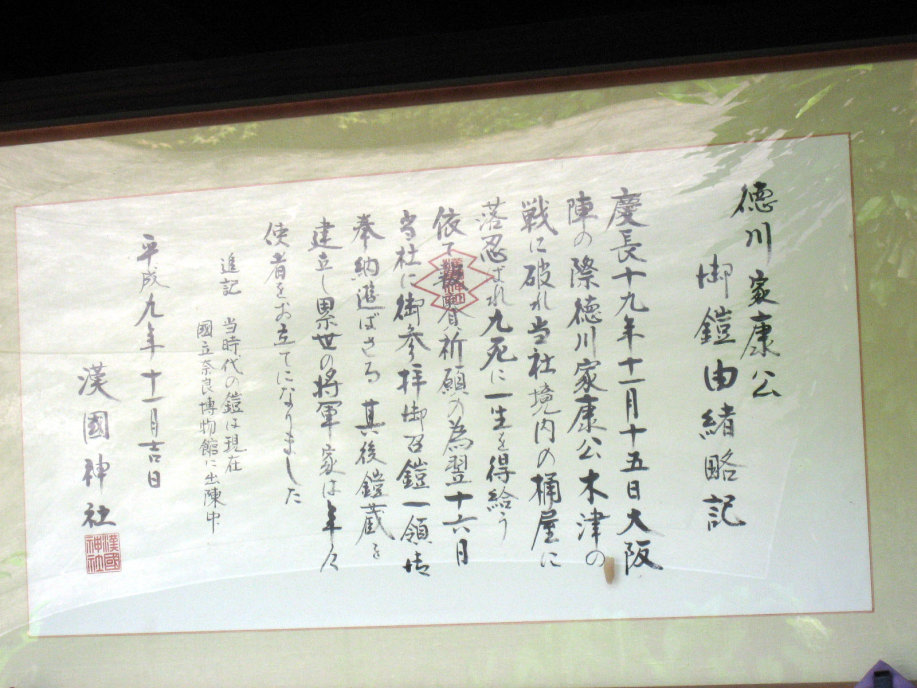 徳川家康公
御鎧由緒略記
慶長十九年十一月十五日大阪
陣の際徳川家康公木津の
戦に破れ当社境内の桶屋に
落忍ばれ九死に一生を得給う
依て 祈願の為翌十六日
当社に御参拝御召鎧一領御
奉納遊ばさる 其後鎧蔵を
建立し累世の将軍家は年々
使者をお立てになりました
追記 当時代の鎧は現在
國立奈良博物館に出陳中
平成九年十一月吉日
漢國神社
漢國神社